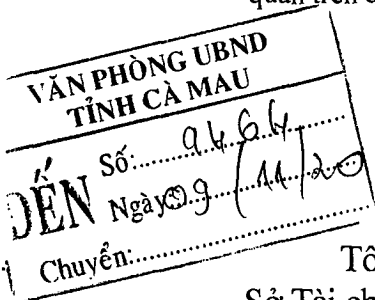 quan trên
VĂN PHÒNG UBND
TỈNH CÀ MAU
ĐẾN
Số: 9464
Ngày 09/11/20
Chuyển:
Tô
Sở Tài ch